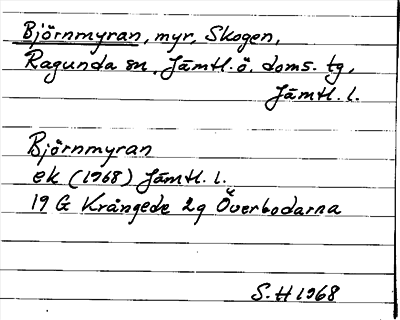 Björnmyran, myr, Skogen,
Ragunda sn, Jämtl. ö. doms. tg,
Jämtl. l.
Björnmyran
ek (1968) Jämtl. l.
19 G Krångede 2g Överbodarna
S. H 1968